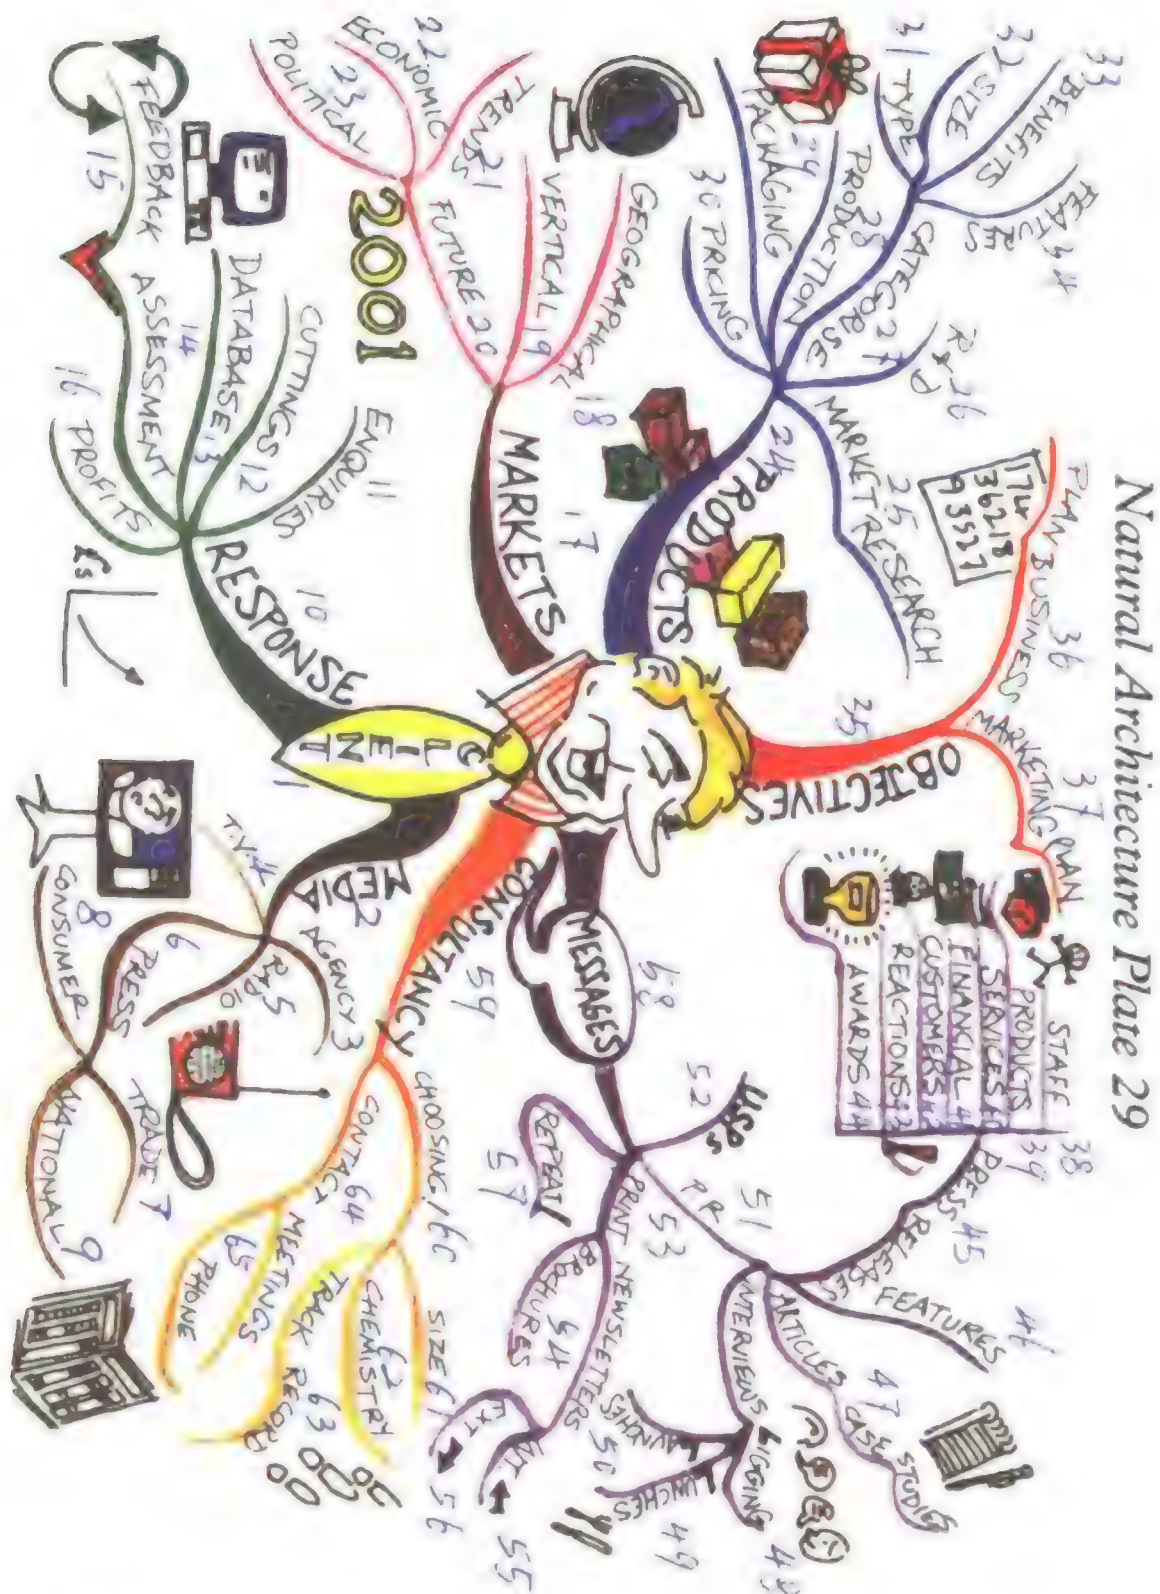 Natural Architecture Plate 29
CLIENT
1
MEDIA
2
AGENCY 3
T.V. 4
RADIO 5
PRESS
6
TRADE 7
CONSUMER
8
NATIONAL 9
RESPONSE
10
ENQUIRIES
11
CUTTINGS 12
DATABASE 13
ASSESSMENT
14
FEEDBACK
15
16 PROFITS
£s
MARKETS
17
GEOGRAPHICAL
18
VERTICAL 19
FUTURE 20
2001
TRENDS
21
ECONOMIC
22
POLITICAL
23
PRODUCTS
24
MARKET RESEARCH
25
R&D 26
CATEGORISE 27
PRODUCTION
28
PACKAGING
29
30 PRICING
31 TYPE
32 SIZE
33
BENEFITS
FEATURES
34
OBJECTIVES
35
BUSINESS
PLAN
36
174
36218
93527
MARKETING PLAN
37
38
STAFF
39
PRODUCTS
SERVICES 40
FINANCIAL 41
CUSTOMERS 42
REACTIONS 43
AWARDS 44
PRESS RELEASES
45
FEATURES
46
ARTICLES
47
CASE STUDIES
INTERVIEWS
LIGGING
48
LUNCHES
49
LAUNCHES
50
PR
51
USPs
52
PRINT
53
NEWSLETTERS
BROCHURES
54
INT.
55
EXT
56
REPEAT!
57
MESSAGES
58
CONSULTANCY
59
CHOOSING! 60
SIZE 61
CHEMISTRY
62
TRACK RECORD
63
CONTACT
64
MEETINGS
65
PHONE